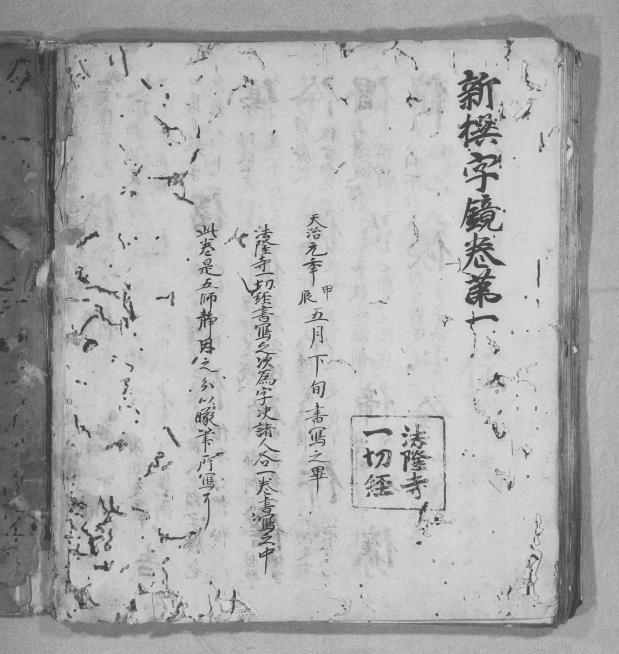 新撰字鏡卷第一
天治元年甲辰五月下旬書寫之畢
法隆寺一切經書寫之次為字決諸人各一卷書寫之中
此卷是五師静因之分以矇筆所寫了
法隆寺
一切經